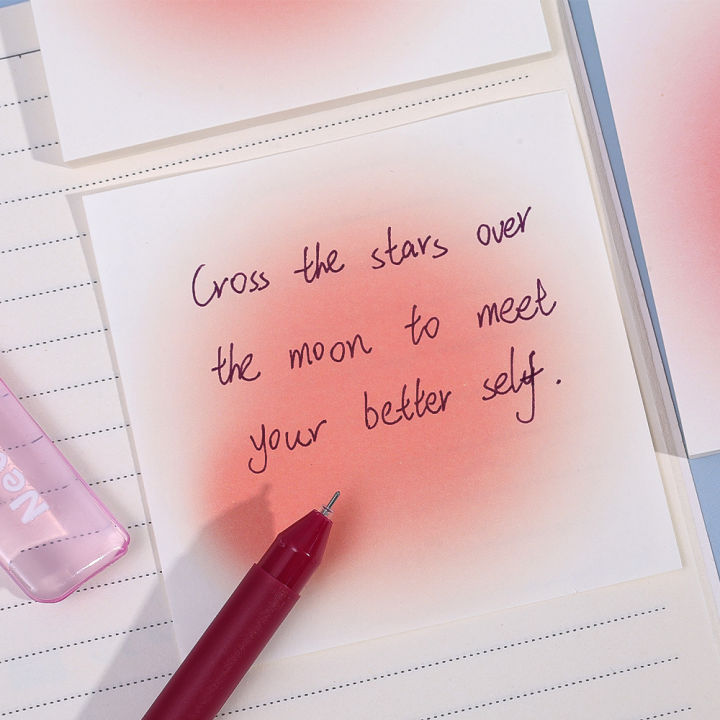 Cross the stars over
the moon to meet
your better self.